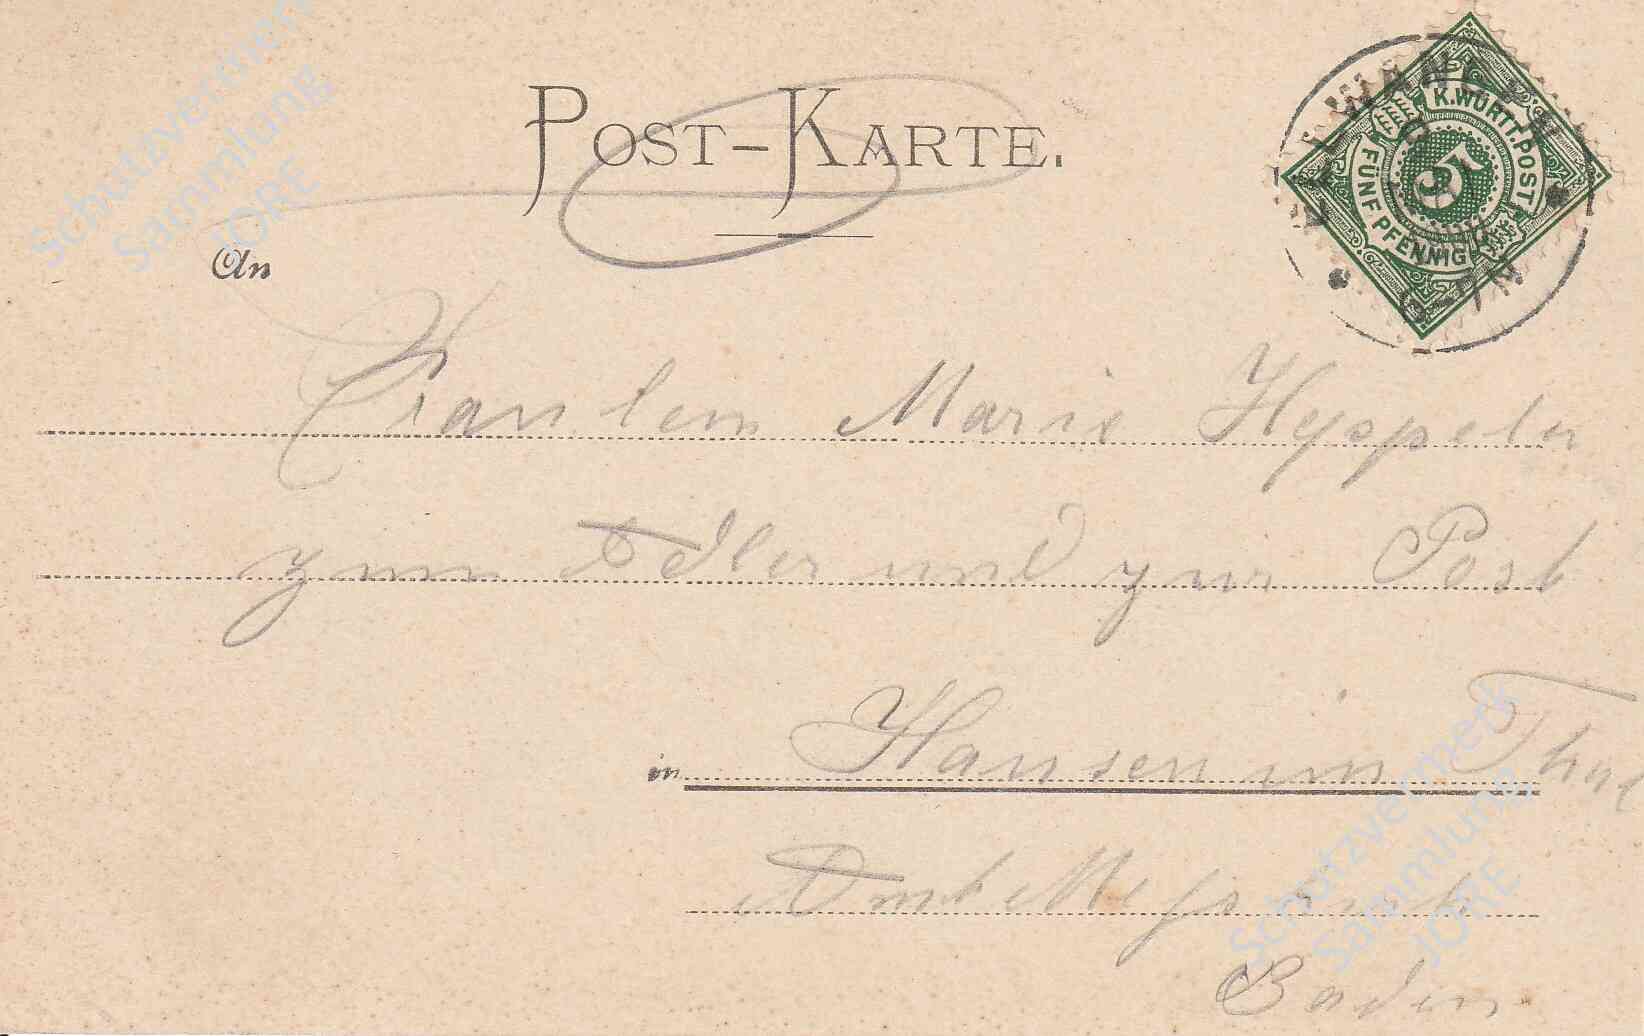 Schutzvermerk
Sammlung
JORE
POST-KARTE.
K.WÜRTT.POST
5
FÜNF PFENNIG
An
Fraulein Marie Heppeler
zum Adler und zur Post
in Hausen im Thal
Amt Meßkirch
Baden
Schutzvermerk
Sammlung
JORE